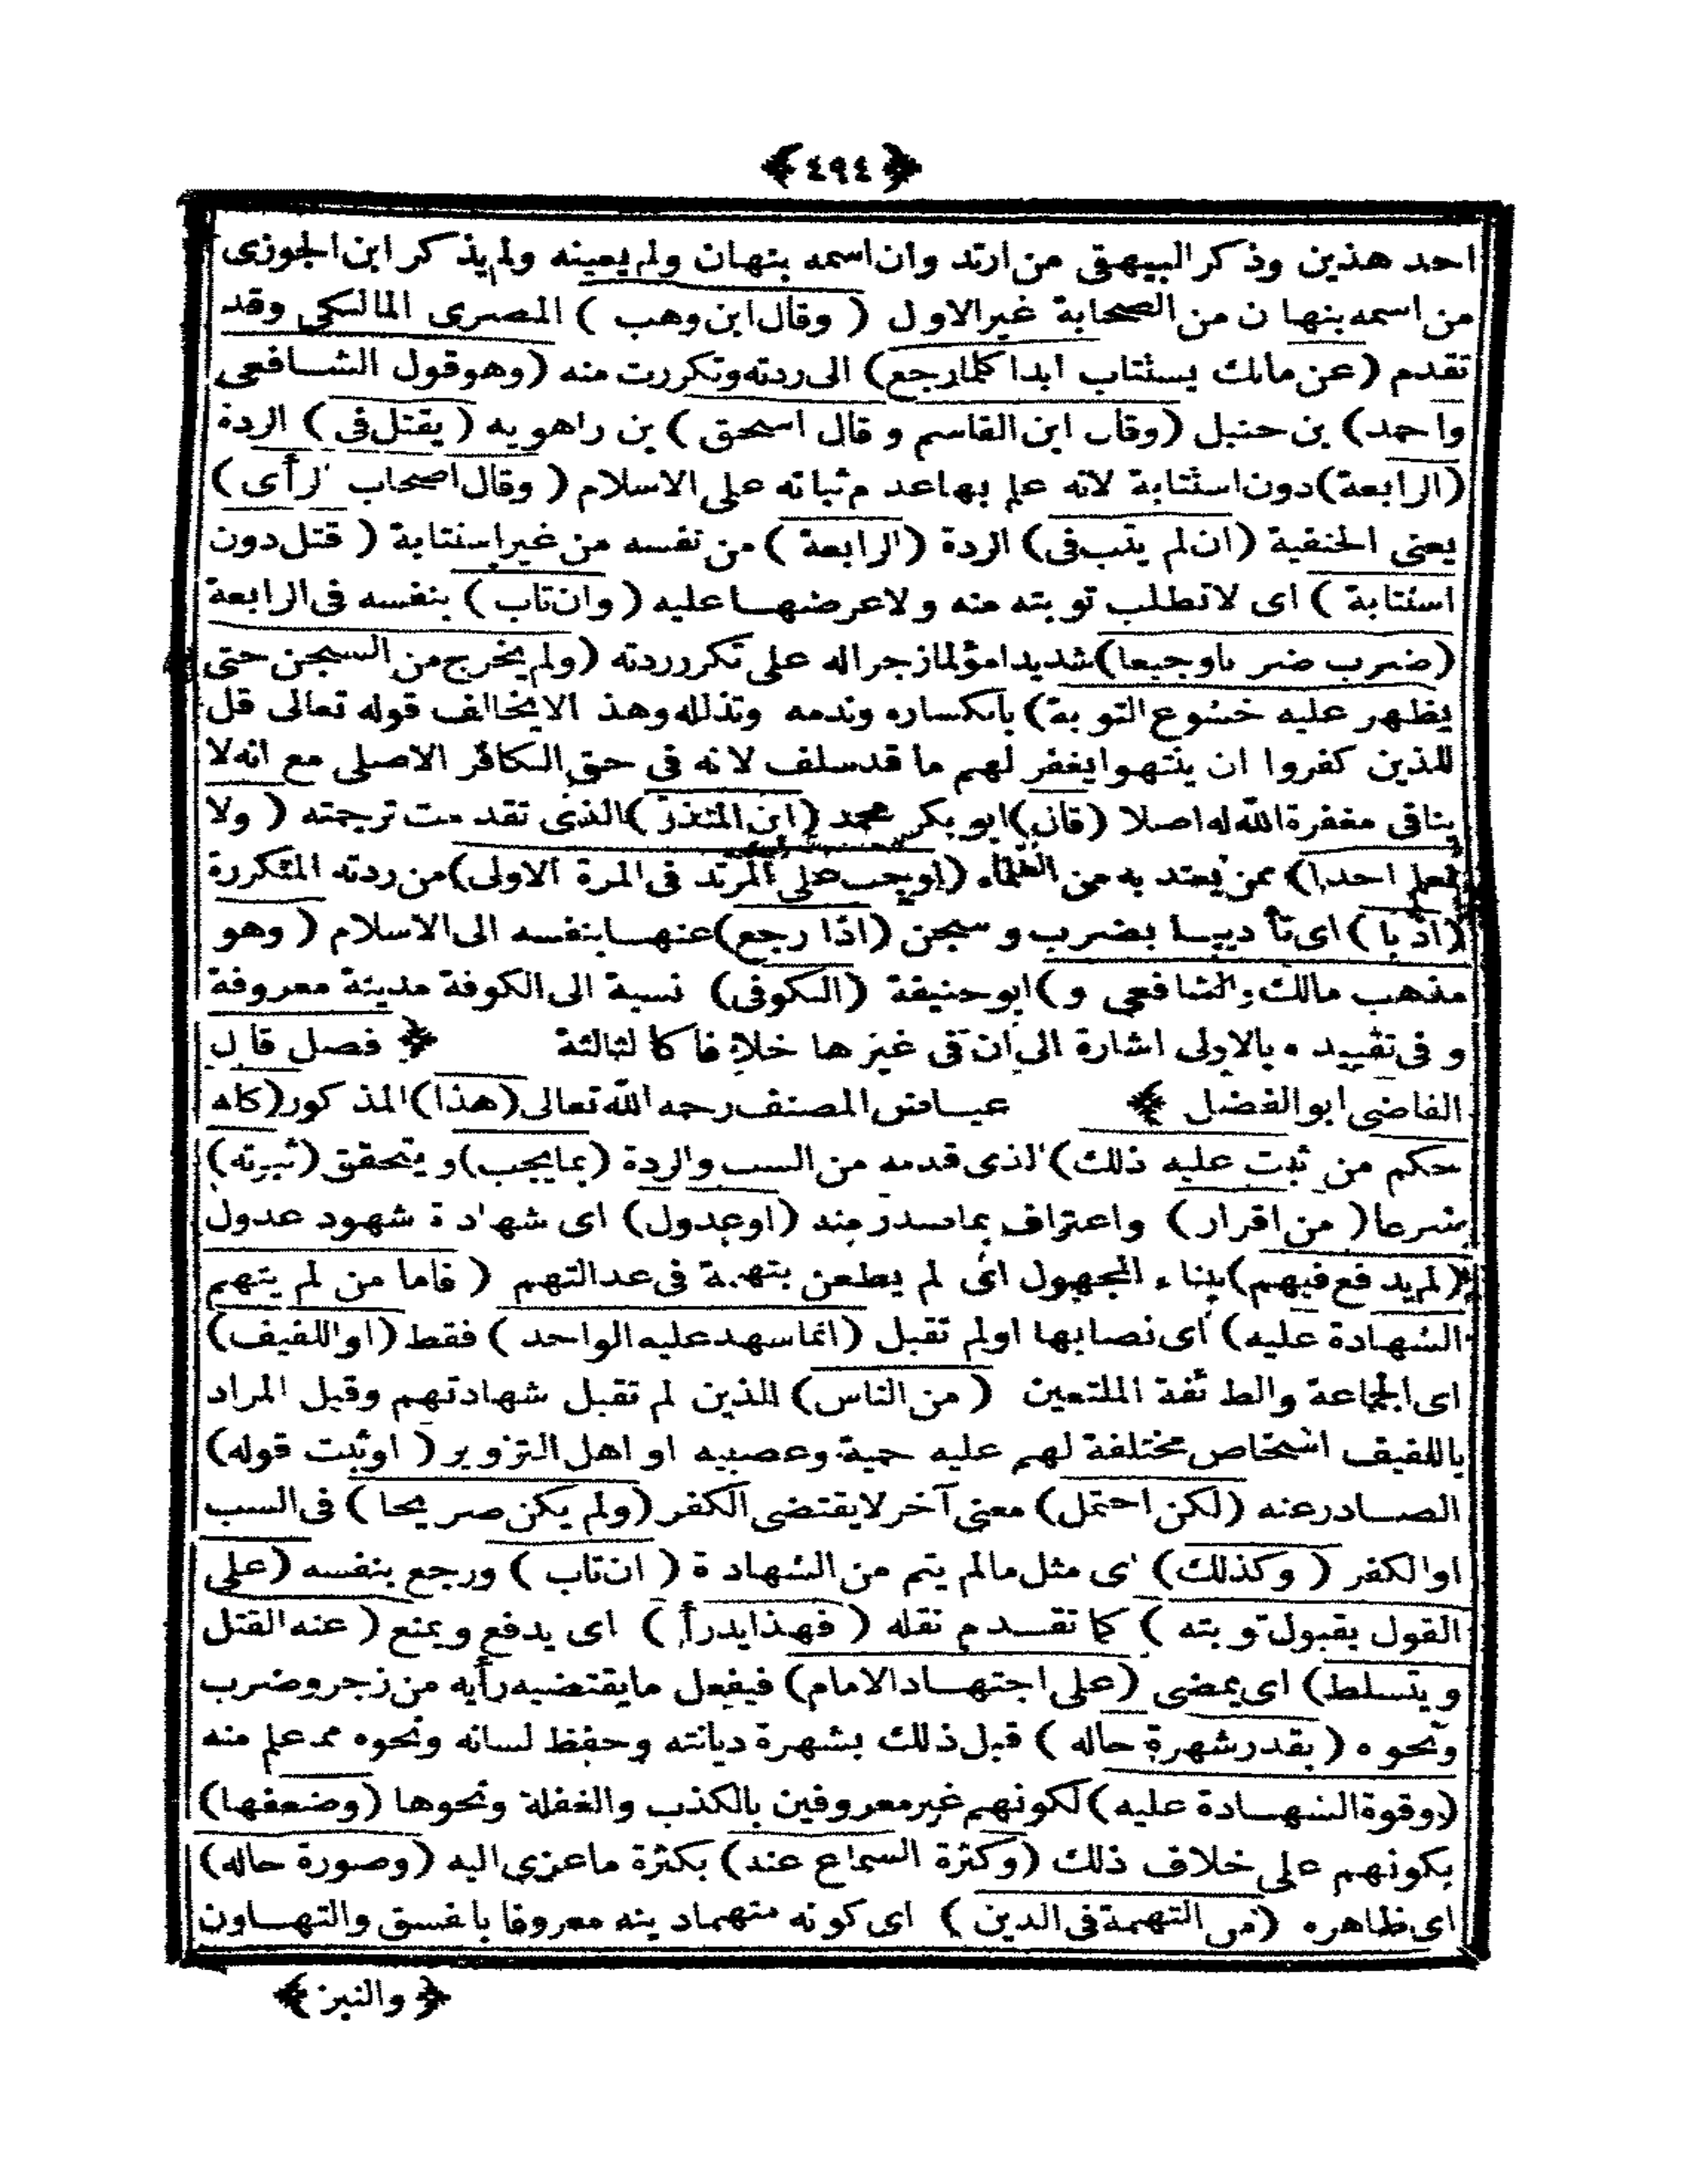 ﴿٤٩٤﴾
احد هذين وذكر البيهقى من ارتد وان اسمه بنهان ولم يعينه ولم يذكر ابن الجوزى
من اسمه بنهان من الصحابة غير الاول ( وقال ابن وهب ) المصرى المالكى وقد
تقدم (عن مالك يستتاب ابدا كلما رجع) الى ردته وتكررت منه (وهو قول الشافعى
واحمد) بن حنبل (وقال ابن القاسم وقال اسحق ) بن راهويه (يقتل فى) الردة
(الرابعة) دون استتابة لانه علم بها عدم ثباته على الاسلام ( وقال اصحاب الرأى)
يعنى الحنفية (ان لم يتب فى) الردة (الرابعة ) من نفسه من غير استتابة ( قتل دون
استتابة ) اى لا تطلب توبته منه ولا عرضها عليه (وان تاب ) بنفسه فى الرابعة
(ضرب ضربا وجيعا) شديدا مؤلما زجرا له على تكرر ردته (ولم يخرج من السجن حتى
يظهر عليه خشوع التوبة) بانكساره وندمه وتذلله وهذا لا يخالف قوله تعالى قل
للذين كفروا ان ينتهوا يغفر لهم ما قد سلف لانه فى حق الكافر الاصلى مع انه لا
ينافى مغفرة الله له اصلا (قال) ابو بكر محمد (ابن المنذر) الذى تقدمت ترجمته ( ولا
نعلم احدا) ممن يعتد به من العلماء (اوجب على المرتد فى المرة الاولى) من ردته المتكررة
(ادبا ) اى تأديبا بضرب وسجن (اذا رجع) عنها بنفسه الى الاسلام ( وهو
مذهب مالك والشافعى و) ابو حنيفة (الكوفى) نسبة الى الكوفة مدينة معروفة
وفى تقييده بالاولى اشارة الى ان فى غيرها خلافا كالثالثة ﴿ فصل قال
القاضى ابو الفضل ﴾ عياض المصنف رحمه الله تعالى (هذا) المذكور (كله
حكم من ثبت عليه ذلك) الذى قدمه من السب والردة (بما يجب) ويتحقق (ثبوته)
شرعا ( من اقرار ) واعتراف بما صدر منه (او عدول) اى شهادة شهود عدول
(لم يدفع فيهم) ببناء المجهول اى لم يطعن بتهمة فى عدالتهم ( فاما من لم يتهم
الشهادة عليه) اى نصابها او لم تقبل (انما شهد عليه الواحد ) فقط (او اللفيف)
اى الجماعة والطائفة الملتعين (من الناس) للذين لم تقبل شهادتهم وقيل المراد
باللفيف اشخاص مختلفة لهم عليه حمية وعصبيه او اهل التزوير ( او ثبت قوله)
الصادر عنه (لكن احتمل) معنى آخر لا يقتضى الكفر (ولم يكن صريحا) فى السب
او الكفر ( وكذلك) اى مثل مالم يتم من الشهادة ( ان تاب ) ورجع بنفسه (على
القول بقبول توبته ) كما تقدم نقله ( فهذا يدرأ ) اى يدفع ويمنع ( عنه القتل
ويتسلط) اى يمضى (على اجتهاد الامام) فيفعل ما يقتضيه رأيه من زجر وضرب
ونحوه (بقدر شهرة حاله ) قبل ذلك بشهرة ديانته وحفظ لسانه ونحوه مما علم منه
(وقوة الشهادة عليه) لكونهم غير معروفين بالكذب والغفلة ونحوها (وضعفها)
بكونهم على خلاف ذلك (وكثرة السماع عند) بكثرة ما عزى اليه (وصورة حاله)
اى ظاهره (من التهمة فى الدين ) اى كونه متهما دينه معروفا بالفسق والتهاون
﴿والنبز﴾